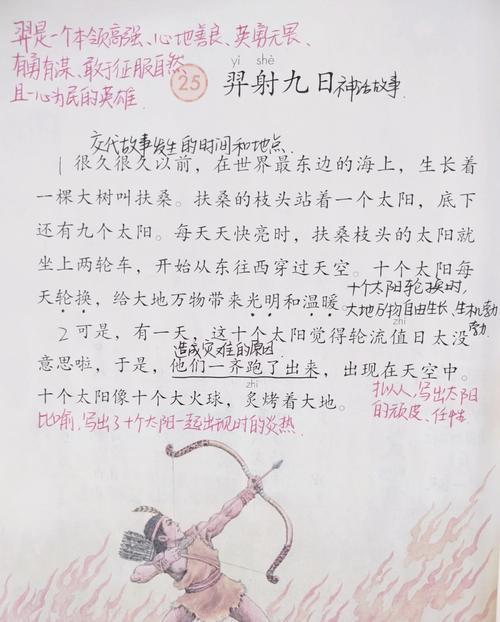 羿是一个本领高强、心地善良、英勇无畏、
有勇有谋、敢于征服自然
且一心为民的英雄.
yì shè
25 羿射九日 神话故事
交代故事发生的时间和地点.
1 很久很久以前，在世界最东边的海上，生长着
一棵大树叫扶桑。扶桑的枝头站着一个太阳，底下
还有九个太阳。每天天快亮时，扶桑枝头的太阳就
坐上两轮车，开始从东往西穿过天空。十个太阳每
天轮换，给大地万物带来光明和温暖。
十个太阳轮换时,
大地万物自由生长、生机勃
勃
zhí
2 可是，有一天，这十个太阳觉得轮流值日太没
造成灾难的原因
意思啦，于是，他们一齐跑了出来，出现在天空中。
zhì
十个太阳像十个大火球，炙烤着大地。
拟人,写出太阳
的顽皮、任性
比喻,写出了十个太阳一起出现时的炎热